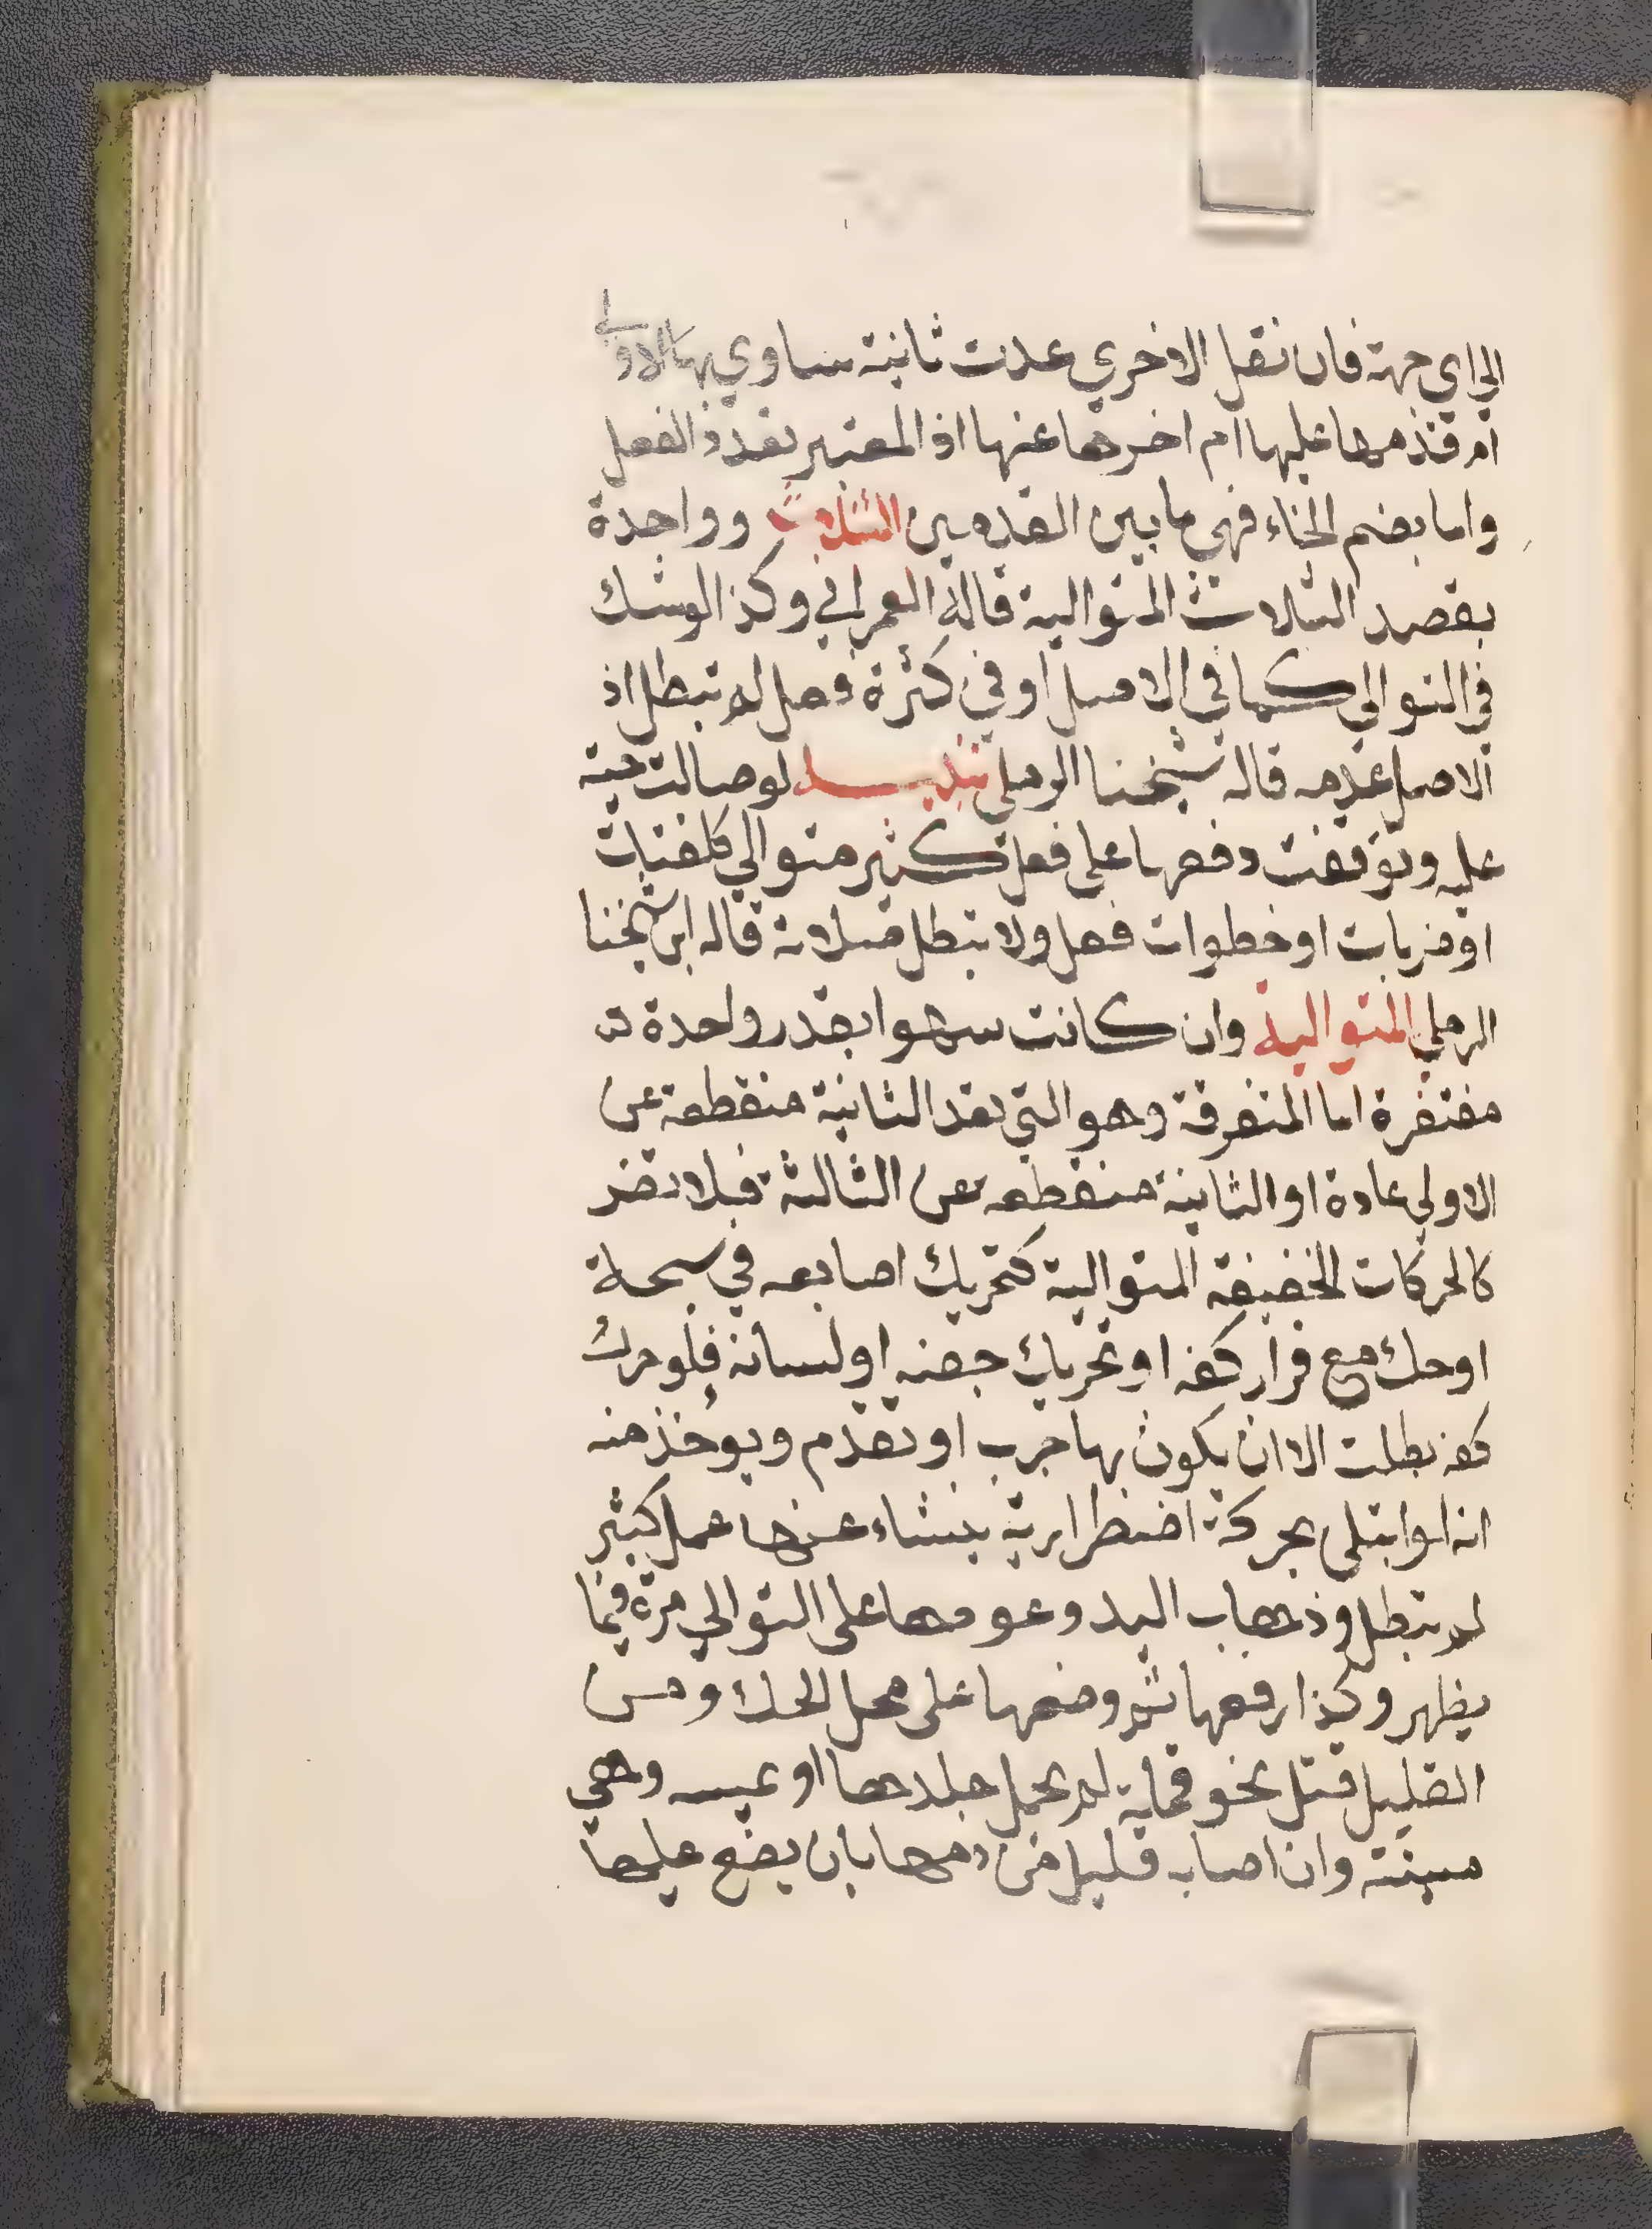 الي اي جهة فان نقل الاخري عدت ثانية ساوي بها الاولي
ام قدمها عليها ام اخرها عنها اذ المعتبر تعدد الفعل
واما بضم الخاء فهي ما بين القدمين الثلاث وواحدة
بقصد الثلاث المتوالية قاله العمراني وكذا لو شك
في التوالي كما في الاصل او في كثرة فعل لم تبطل اذ
الاصل عدمه قاله شيخنا الرملي تنبيه لو صالت حية
عليه وتوقفت دفعها على فعل كثير متوالي كلفتات
او ضربات او خطوات فعل ولا تبطل صلاته قاله ابن شيخنا
الرملي المتوالية وان كانت سهوا بقدر واحدة
مغتفرة اما المتفرقة وهو التي تعد الثانية منقطعة عن
الاولي عادة او الثانية منقطعه عن الثالثة فلا تضر
كالحركات الخفيفة المتوالية كتحريك اصابعه في سبحة
او حك مع قرار كفه او تحريك جفنه او لسانه فلو حرك
كفه بطلت الا ان يكون بها جرب او تقدم ويوخذ منه
انه لو ابتلى بحركة اضطرارية ينشاء عنها عمل كثير
لم تبطل وذهاب اليد وعودها على التوالي مرة فيما
يظهر وكذا رفعها ثم وضعها على محل الحك ومن
القليل قتل نحو قملة لم يحمل جلدها او يمسه وهي
ميتة وان اصاب قليل من دمها بان يضع عليها